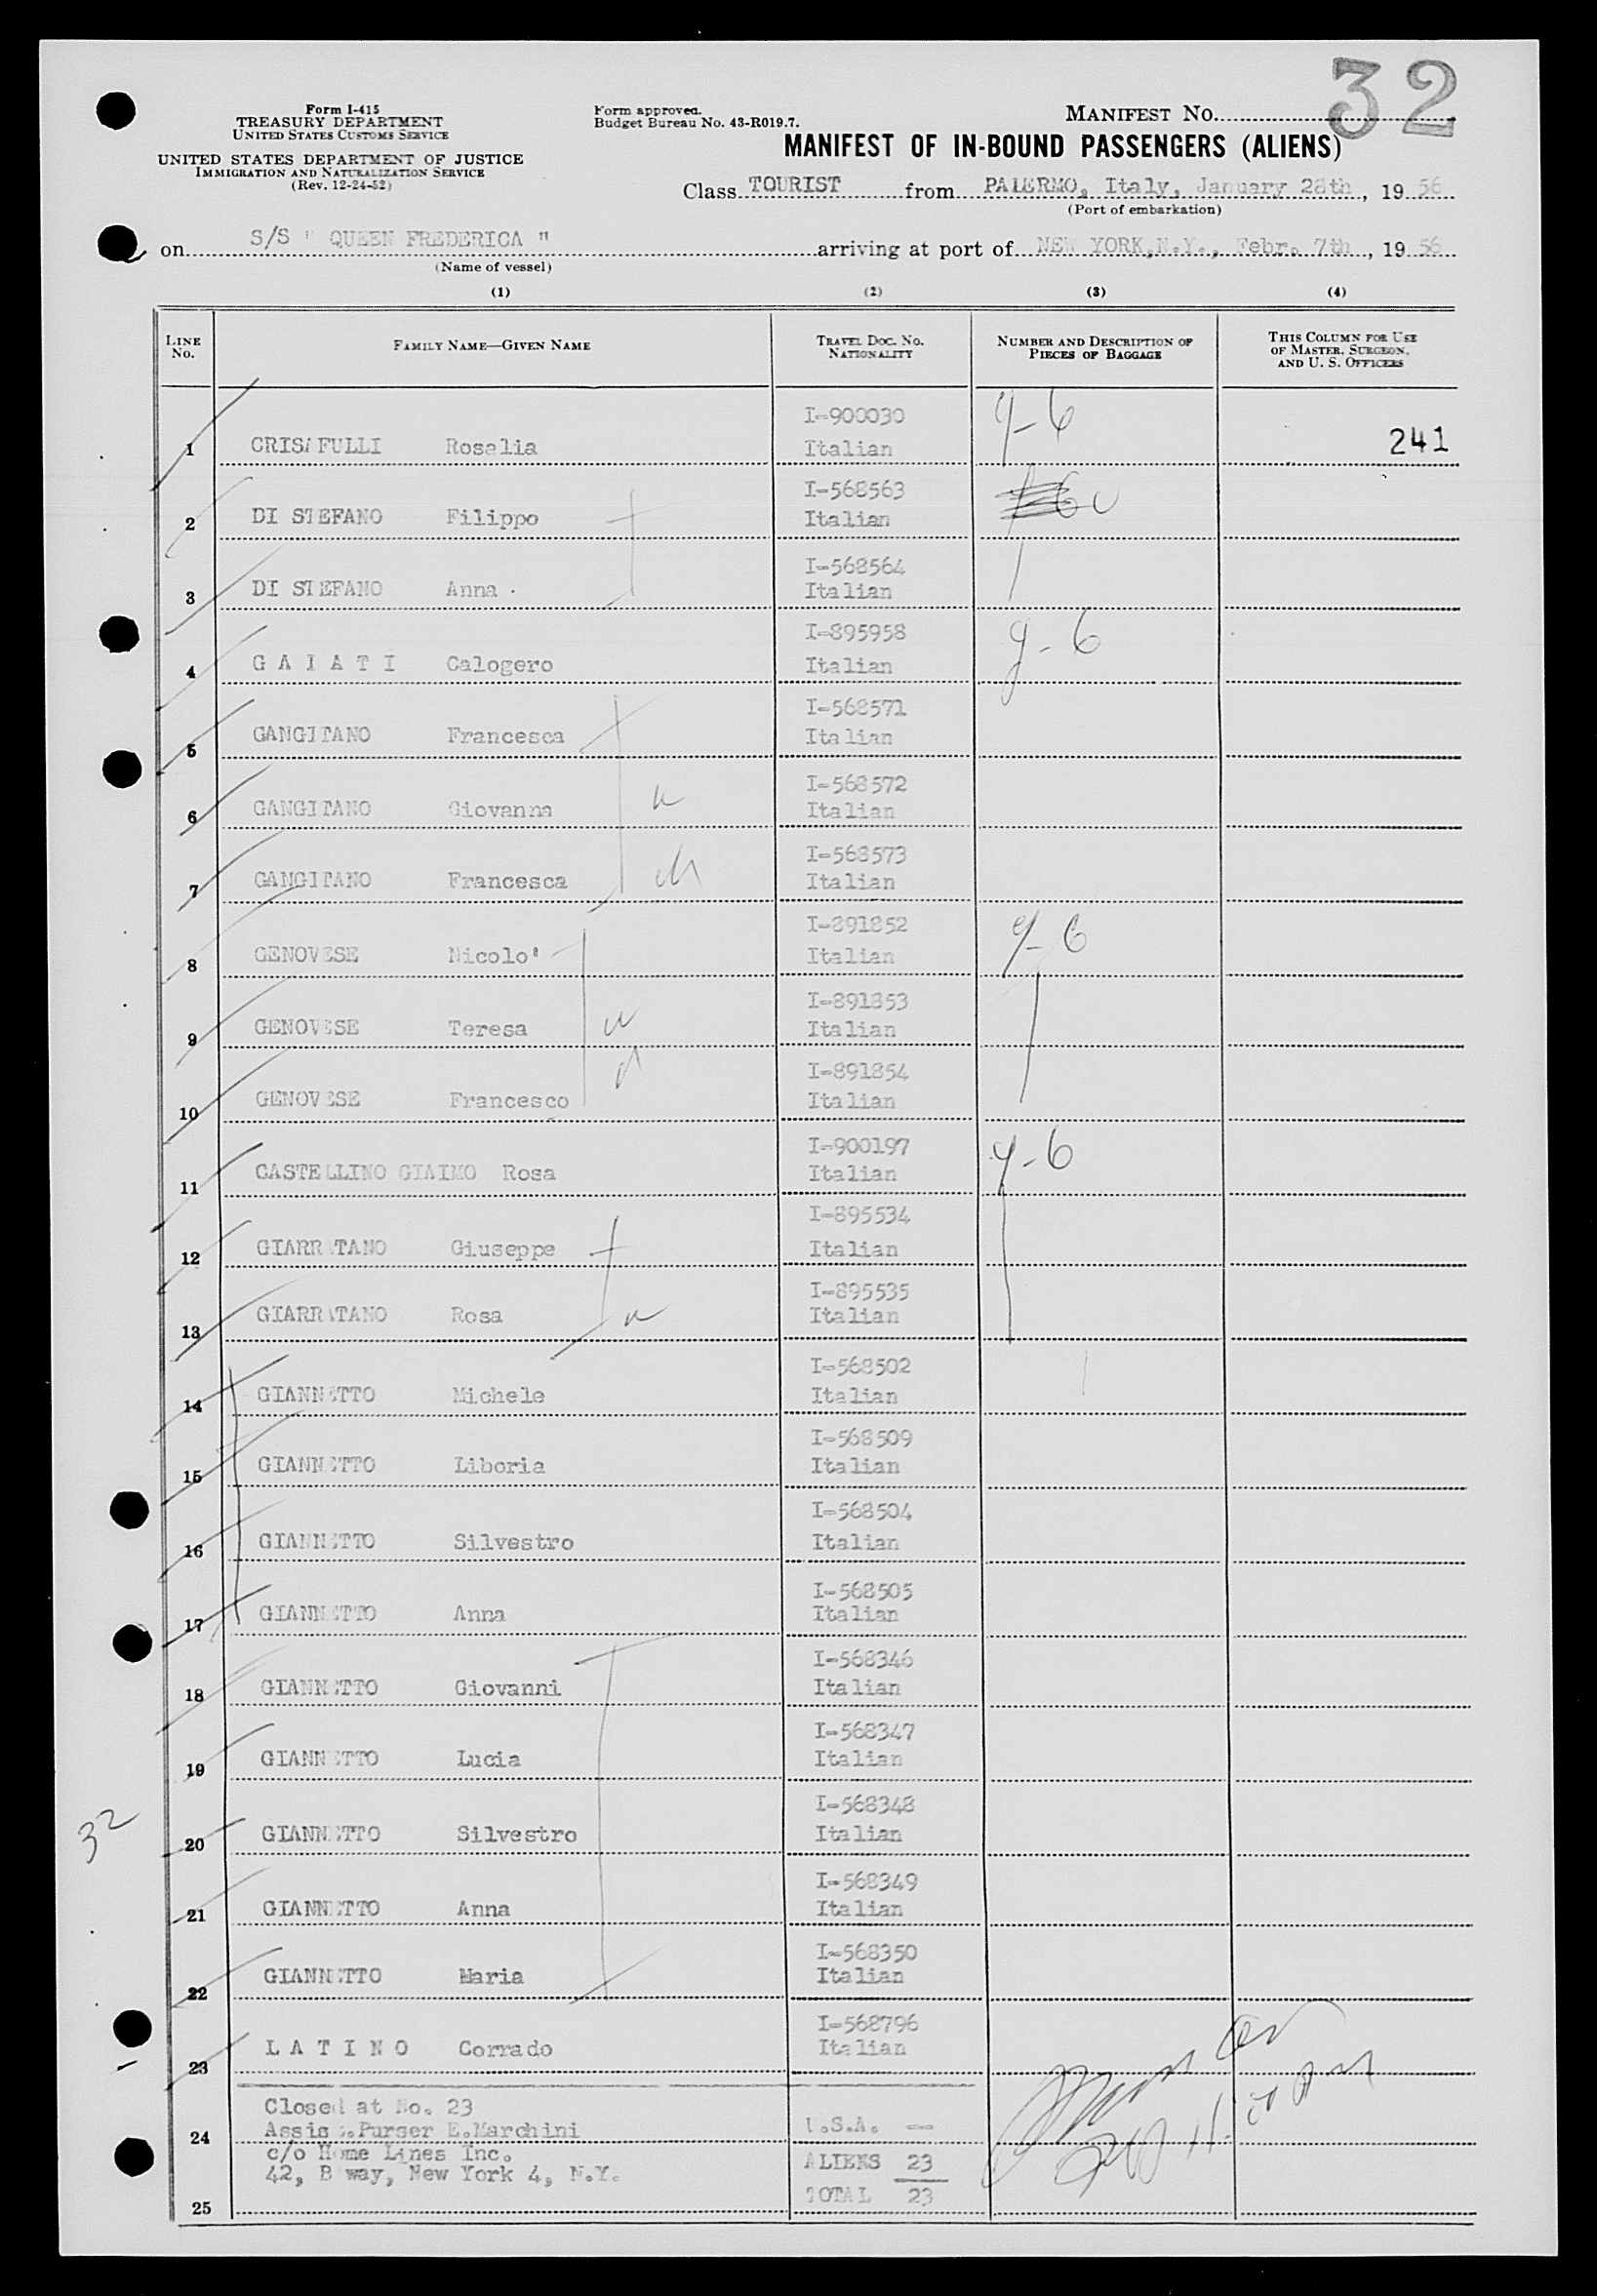 32
Form I-415
TREASURY DEPARTMENT
UNITED STATES CUSTOMS SERVICE
UNITED STATES DEPARTMENT OF JUSTICE
IMMIGRATION AND NATURALIZATION SERVICE
(Rev. 12-24-52)
Form approved.
Budget Bureau No. 43-R019.7.
MANIFEST No.
MANIFEST OF IN-BOUND PASSENGERS (ALIENS)
Class TOURIST from PALERMO, Italy, January 28th, 19 56
(Port of embarkation)
on S/S " QUEEN FREDERICA " arriving at port of NEW YORK,N.Y., Febr. 7th, 19 56
(Name of vessel)
(1) (2) (3) (4)
LINE No. FAMILY NAME—GIVEN NAME TRAVEL DOC. No. NATIONALITY NUMBER AND DESCRIPTION OF PIECES OF BAGGAGE THIS COLUMN FOR USE OF MASTER, SURGEON, AND U. S. OFFICERS
I-900030
1 CRISAFULLI Rosalia Italian 241
I-568563
2 DI STEFANO Filippo Italian
I-568564
3 DI STEFANO Anna Italian
I-895958
4 G A I A T I Calogero Italian
I-568571
5 GANGITANO Francesca Italian
I-568572
6 GANGITANO Giovanna Italian
I-568573
7 GANGITANO Francesca Italian
I-891852
8 GENOVESE Nicolo' Italian
I-891853
9 GENOVESE Teresa Italian
I-891854
10 GENOVESE Francesco Italian
I-900197
11 CASTELLINO GIAIMO Rosa Italian
I-895534
12 GIARRATANO Giuseppe Italian
I-895535
13 GIARRATANO Rosa Italian
I-568502
14 GIANNETTO Michele Italian
I-568509
15 GIANNETTO Liboria Italian
I-568504
16 GIANNETTO Silvestro Italian
I-568505
17 GIANNETTO Anna Italian
I-568346
18 GIANNETTO Giovanni Italian
I-568347
19 GIANNETTO Lucia Italian
32
I-568348
20 GIANNETTO Silvestro Italian
I-568349
21 GIANNETTO Anna Italian
I-568350
22 GIANNETTO Maria Italian
I-568796
23 L A T I N O Corrado Italian
Closed at No. 23
24 Assist.Purser E.Marchini U.S.A. --
c/o Home Lines Inc. ALIENS 23
42, B'way, New York 4, N.Y.
25 TOTAL 23